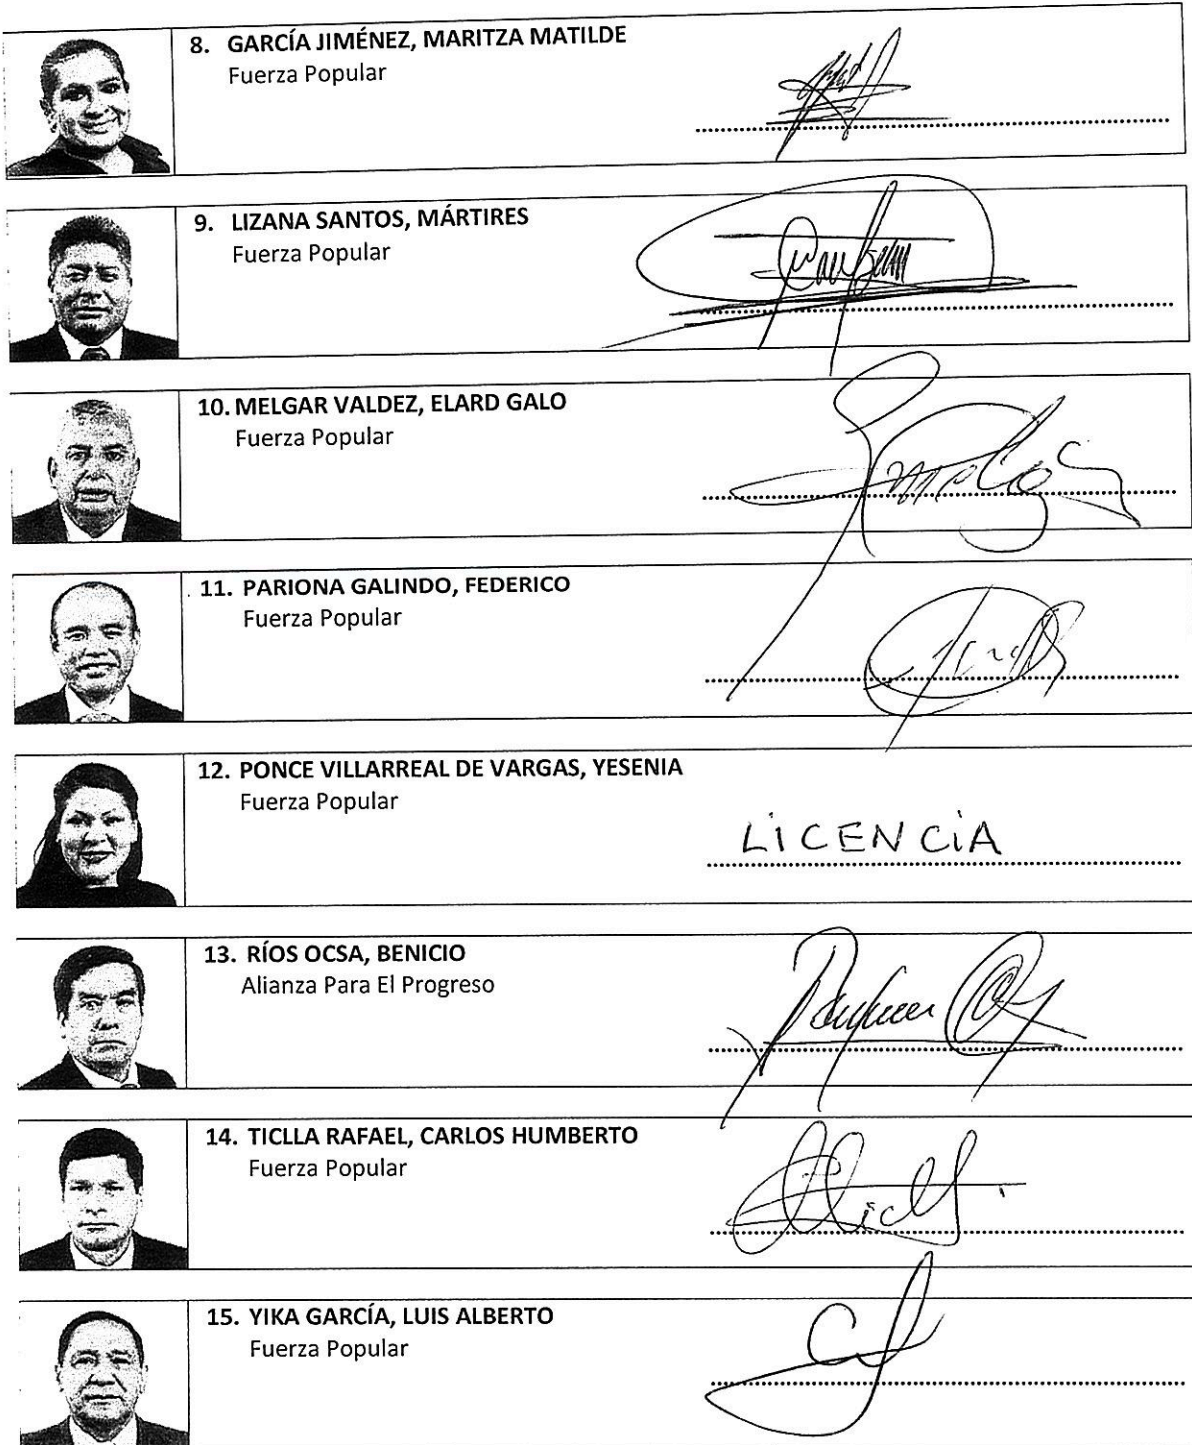 8. GARCÍA JIMÉNEZ, MARITZA MATILDE
Fuerza Popular
9. LIZANA SANTOS, MÁRTIRES
Fuerza Popular
10. MELGAR VALDEZ, ELARD GALO
Fuerza Popular
11. PARIONA GALINDO, FEDERICO
Fuerza Popular
12. PONCE VILLARREAL DE VARGAS, YESENIA
Fuerza Popular
LiCENCiA
13. RÍOS OCSA, BENICIO
Alianza Para El Progreso
14. TICLLA RAFAEL, CARLOS HUMBERTO
Fuerza Popular
15. YIKA GARCÍA, LUIS ALBERTO
Fuerza Popular